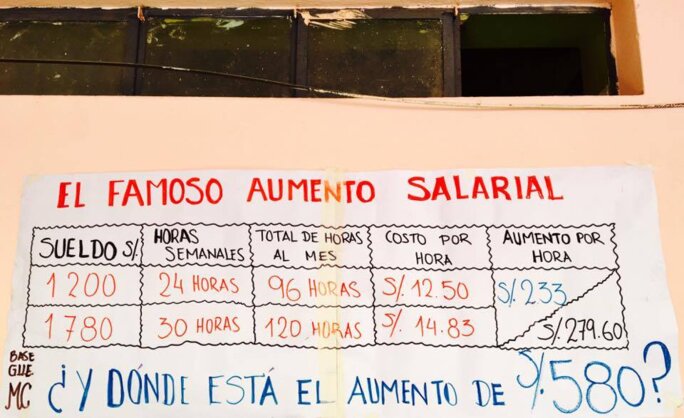 EL FAMOSO AUMENTO SALARIAL
SUELDO S/. HORAS SEMANALES TOTAL DE HORAS AL MES COSTO POR HORA AUMENTO POR HORA
1200 24 HORAS 96 HORAS S/. 12.50 S/. 233
1780 30 HORAS 120 HORAS S/. 14.83 S/. 279.60
BASE
G.U.E.
MC
¿Y DÓNDE ESTÁ EL AUMENTO DE S/. 580?